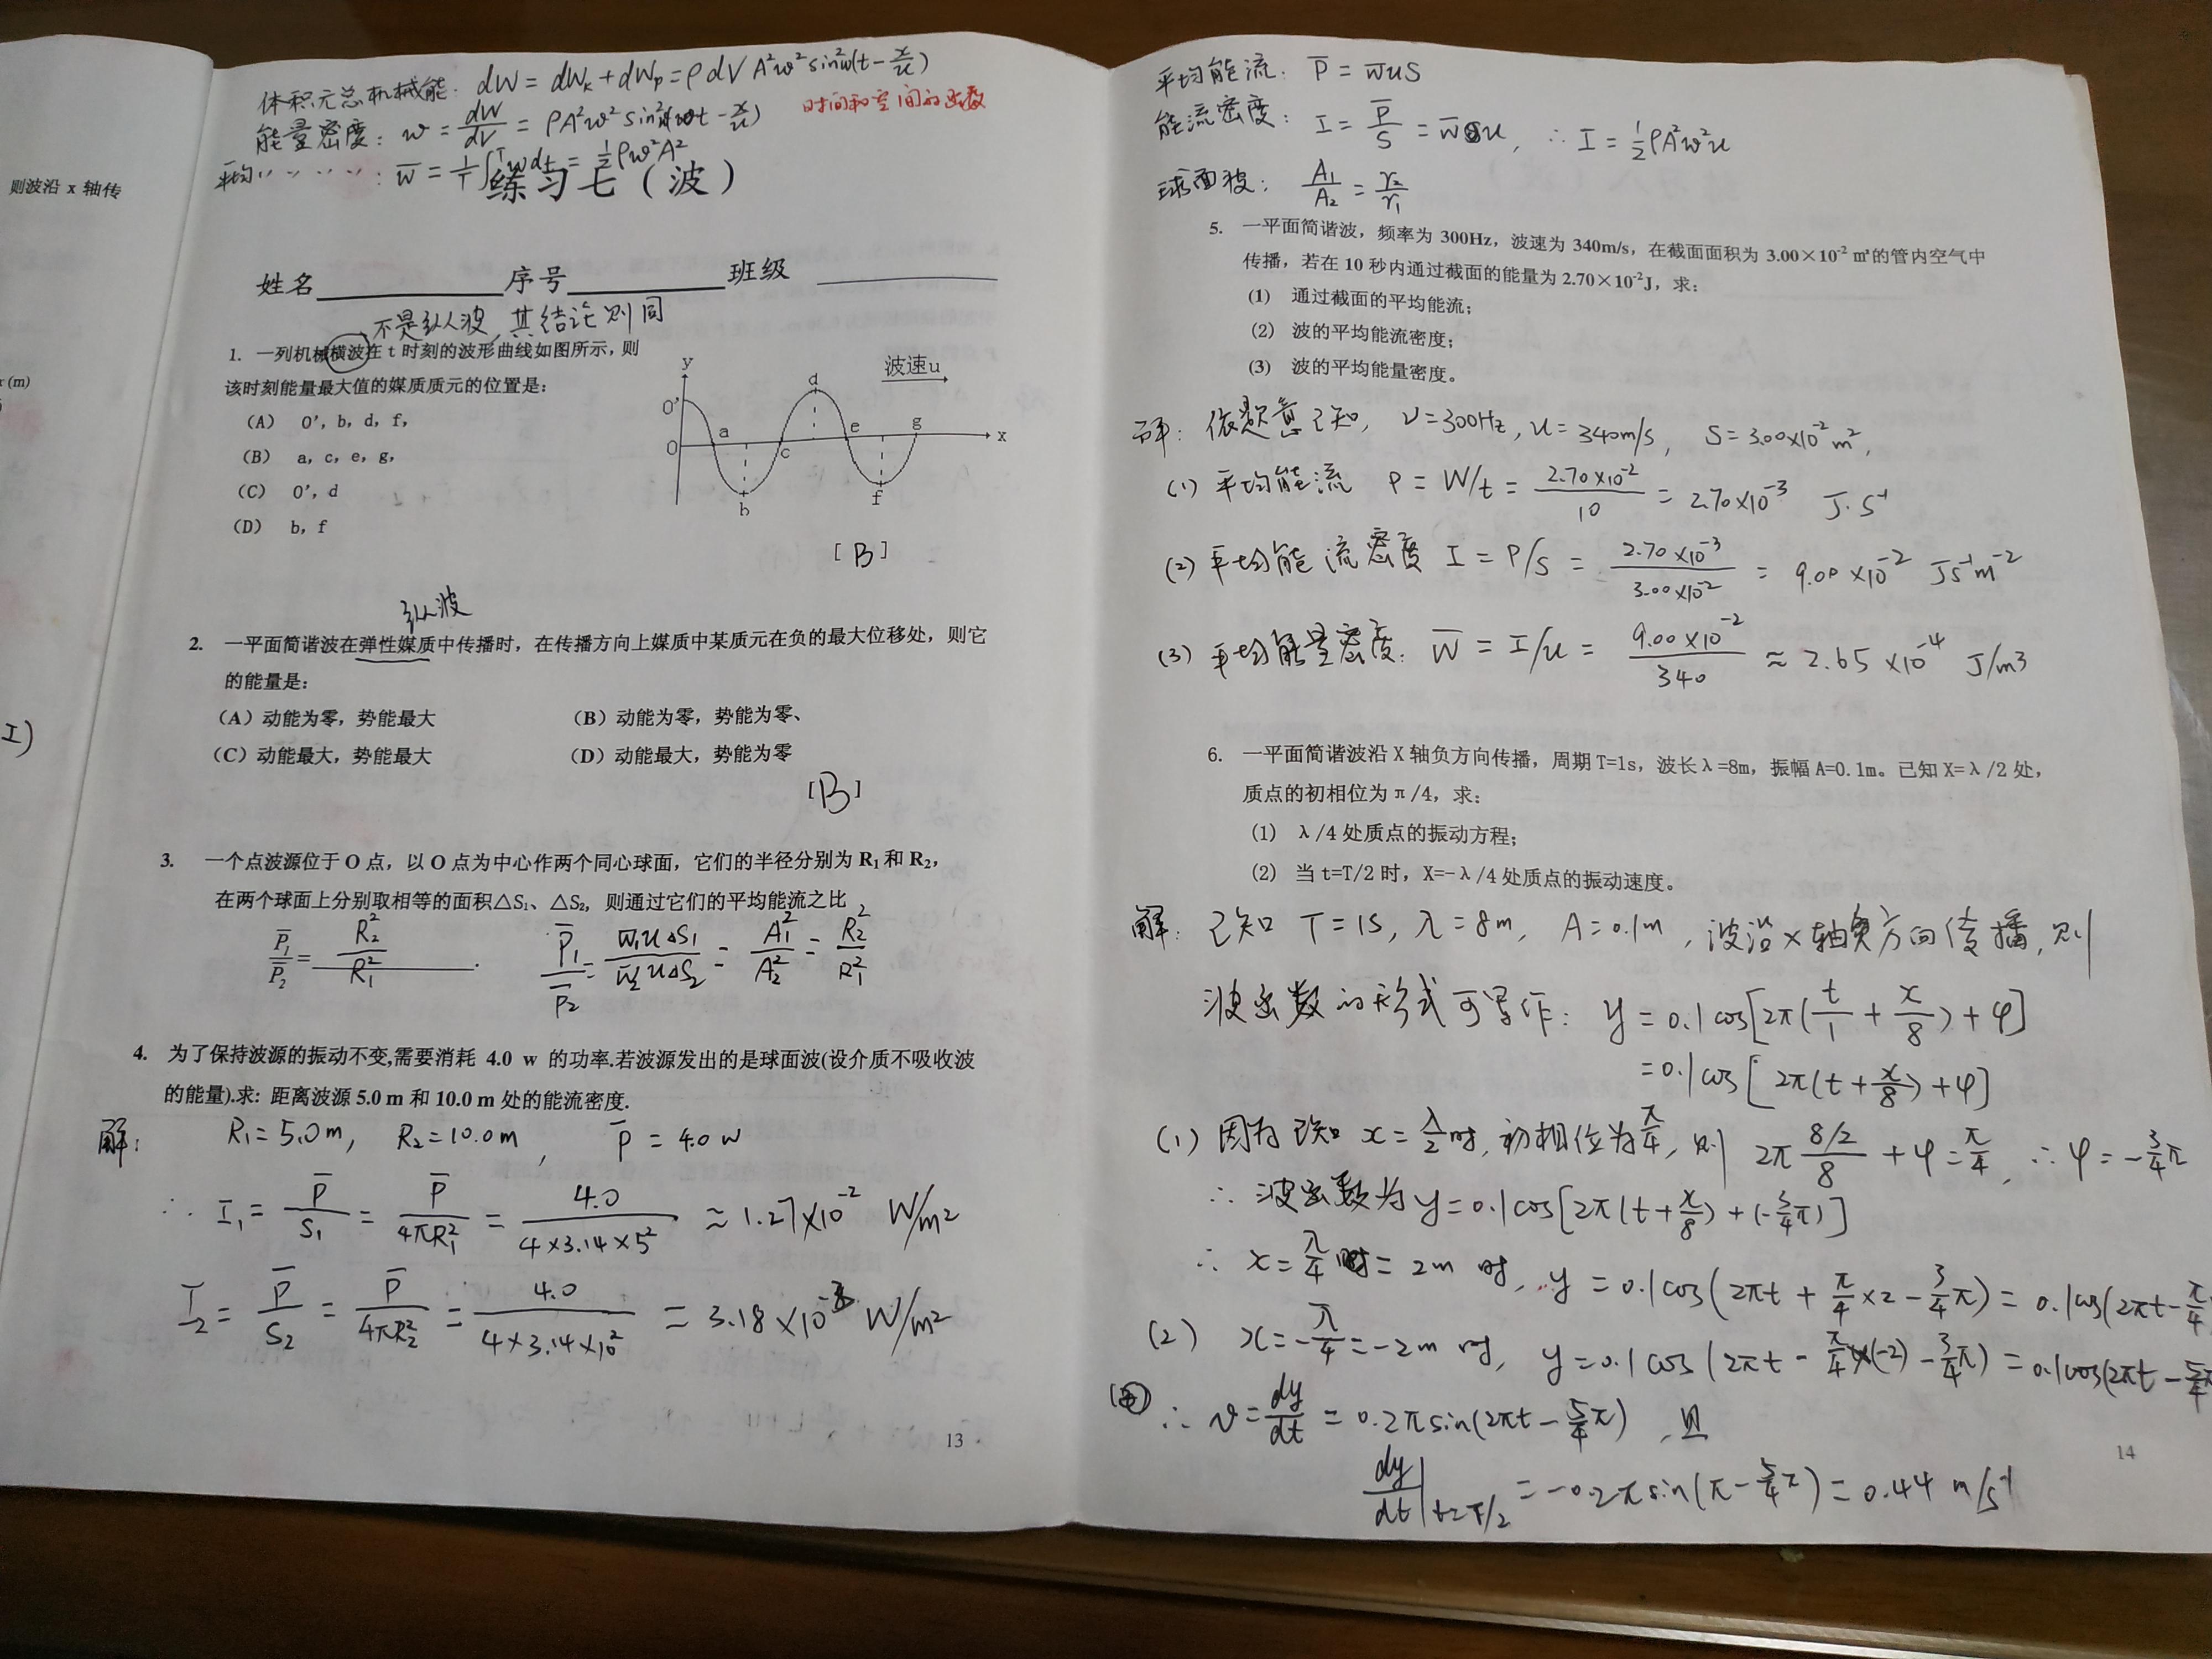 则波沿 x 轴传
体积元总机械能: dW = dWk + dWp = ρdVA²ω²sin²ω(t - x/u)
能量密度: w = dW/dV = ρA²ω²sin²(ωt - x/u) 时间和空间的函数
平均〃〃〃〃: w̄ = 1/T ∫ᵀwdt = ½ρω²A²
练习七（波）
姓名 序号 班级
不是纵波，其结论则同
1. 一列机械横波在 t 时刻的波形曲线如图所示，则
该时刻能量最大值的媒质质元的位置是:
(A) O′, b, d, f,
(B) a, c, e, g,
(C) O′, d
(D) b, f
y
波速u
O′
d
a
e
g
x
O
c
b
f
[B]
纵波
2. 一平面简谐波在弹性媒质中传播时，在传播方向上媒质中某质元在负的最大位移处，则它
的能量是:
（A）动能为零，势能最大 （B）动能为零，势能为零、
（C）动能最大，势能最大 （D）动能最大，势能为零
[B]
3. 一个点波源位于 O 点，以 O 点为中心作两个同心球面，它们的半径分别为 R₁ 和 R₂，
在两个球面上分别取相等的面积△S₁、△S₂，则通过它们的平均能流之比
P̄₁/P̄₂= R₂²/R₁² . P̄₁/P̄₂ = w̄₁u△S₁/w̄₂u△S₂ = A₁²/A₂² = R₂²/R₁²
4. 为了保持波源的振动不变,需要消耗 4.0 w 的功率.若波源发出的是球面波(设介质不吸收波
的能量).求: 距离波源 5.0 m 和 10.0 m 处的能流密度.
解: R₁=5.0m, R₂=10.0m, P̄=4.0w
∴ I₁= P̄/S₁ = P̄/4πR₁² = 4.0/4×3.14×5² ≈ 1.27×10⁻² W/m²
I₂= P̄/S₂ = P̄/4πR₂² = 4.0/4×3.14×10² = 3.18×10⁻³ W/m²
13
平均能流: P̄ = w̄uS
能流密度: I = P̄/S = w̄u, ∴ I = ½ρA²ω²u
球面波: A₁/A₂ = r₂/r₁
5. 一平面简谐波，频率为 300Hz，波速为 340m/s，在截面面积为 3.00×10⁻² ㎡的管内空气中
传播，若在 10 秒内通过截面的能量为 2.70×10⁻²J，求:
(1) 通过截面的平均能流;
(2) 波的平均能流密度;
(3) 波的平均能量密度。
解: 依题意已知, ν=300Hz, u=340m/s, S=3.00×10⁻²m²,
(1) 平均能流 P = W/t = 2.70×10⁻²/10 = 2.70×10⁻³ J·S⁻¹
(2) 平均能流密度 I = P/S = 2.70×10⁻³/3.00×10⁻² = 9.00×10⁻² Js⁻¹m⁻²
(3) 平均能量密度: w̄ = I/u = 9.00×10⁻²/340 ≈ 2.65×10⁻⁴ J/m3
6. 一平面简谐波沿 X 轴负方向传播，周期 T=1s，波长 λ=8m，振幅 A=0.1m。已知 X=λ/2 处，
质点的初相位为 π/4，求:
(1) λ/4 处质点的振动方程;
(2) 当 t=T/2 时，X=-λ/4 处质点的振动速度。
解: 已知 T=1S, λ=8m, A=0.1m, 波沿x轴负方向传播, 则
波函数的形式可写作: y=0.1cos[2π(t/1 + x/8)+φ]
=0.1cos[2π(t+x/8)+φ]
(1) 因为已知 x=λ/2时, 初相位为π/4, 则 2π 8/2/8 +φ=π/4, ∴φ=-3/4π
∴ 波函数为y=0.1cos[2π(t+x/8)+(-3/4π)]
∴ x=λ/4 = 2m 时, y=0.1cos(2πt+π/4×2-3/4π)=0.1cos(2πt-π/4
(2) x=-λ/4=-2m 时, y=0.1cos(2πt-π/4×(-2)-3/4π)=0.1cos(2πt-5/4π
∴ v=dy/dt = 0.2πsin(2πt-5/4π), 且
dy/dt|t=T/2 =-0.2πsin(π-5/4π)=0.44 m/s⁻¹
14